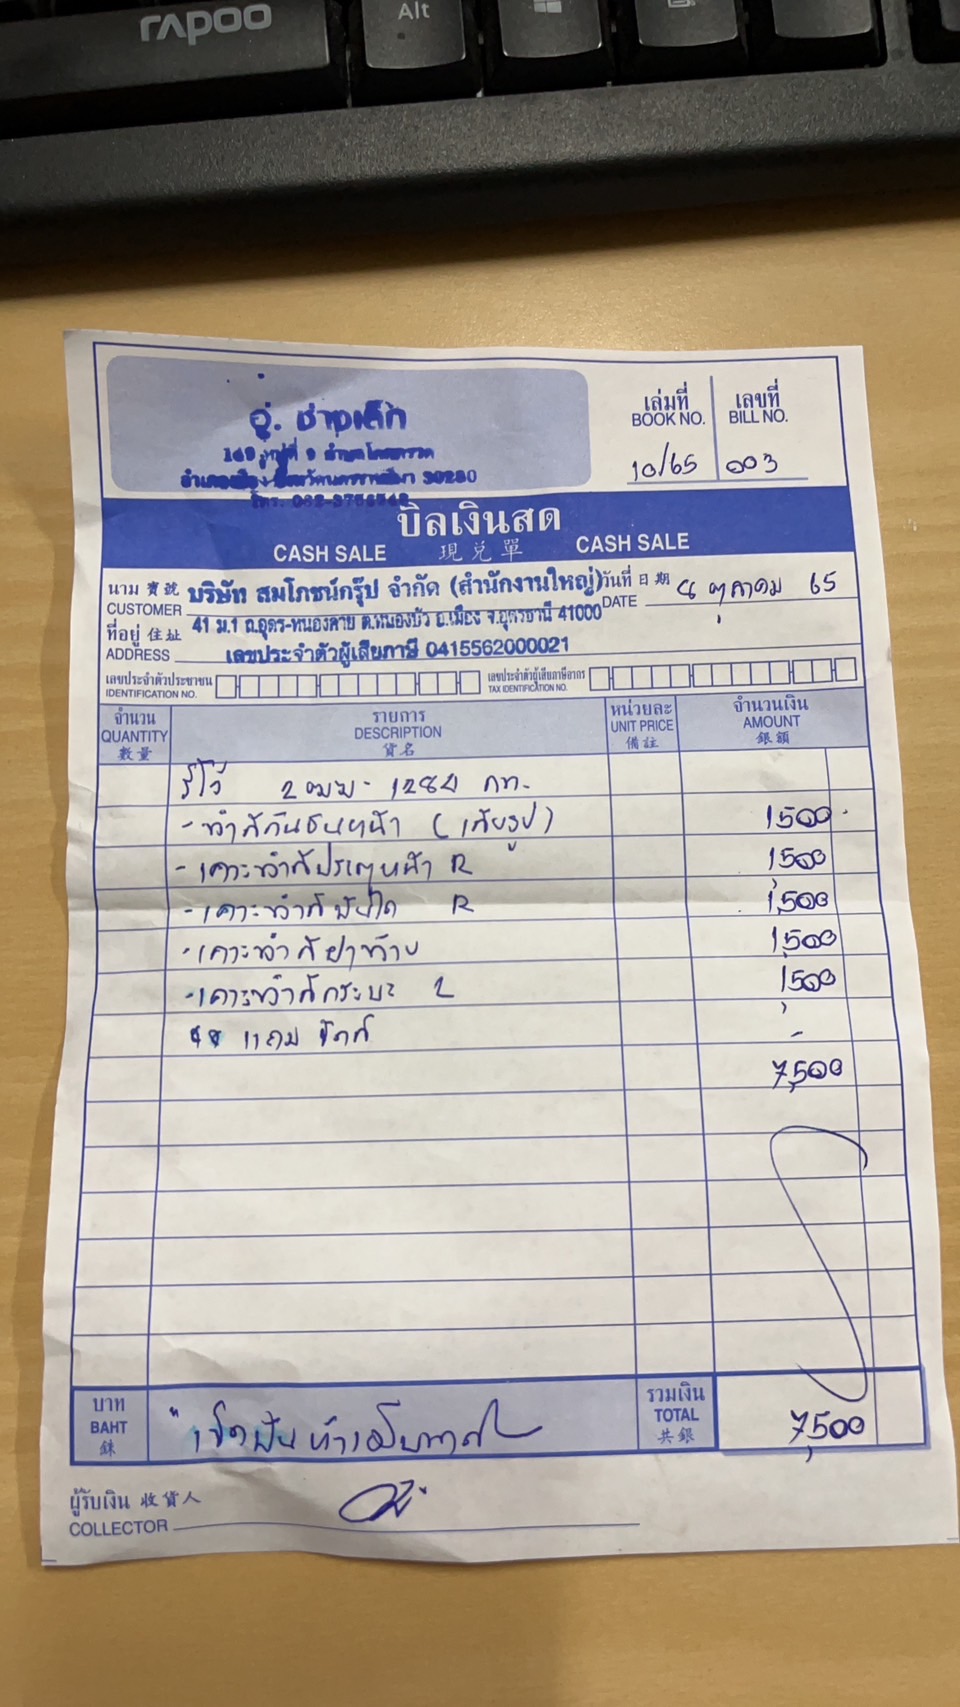 rapoo
Alt
อู่. ช่างเล็ก
อำเภอเมือง จังหวัดนครราชสีมา 30280
เล่มที่ เลขที่
BOOK NO. BILL NO.
10/65 003
บิลเงินสด
CASH SALE 現兌單 CASH SALE
นาม 寶號 บริษัท สมโภชน์กรุ๊ป จำกัด (สำนักงานใหญ่) วันที่ 日期 ตุลาคม 65
CUSTOMER DATE
ที่อยู่ 住址 41 ม.1 ถ.อุดร-หนองคาย ต.หมากแข้ง อ.เมือง จ.อุดรธานี 41000
ADDRESS เลขประจำตัวผู้เสียภาษี 0415562000021
เลขประจำตัวประชาชน เลขประจำตัวผู้เสียภาษีอากร
IDENTIFICATION NO. TAX IDENTIFICATION NO.
จำนวน รายการ หน่วยละ จำนวนเงิน
QUANTITY DESCRIPTION UNIT PRICE AMOUNT
數量 貨名 備註 銀額
รีโว้ 2ฒฆ - 1284 กท.
- ทำสีกันชนหน้า (เสียรูป) 1500
- เคาะทำสีประตูหน้า R 1,500
- เคาะทำสีบันได R 1,500
- เคาะทำสีฝาท้าย 1,500
- เคาะทำสีกระบะ L 1,500
แถม ขัดสี -
7,500
บาท รวมเงิน
BAHT เจ็ดพันห้าร้อยบาท TOTAL 7,500
銖 共銀
ผู้รับเงิน 收貨人
COLLECTOR